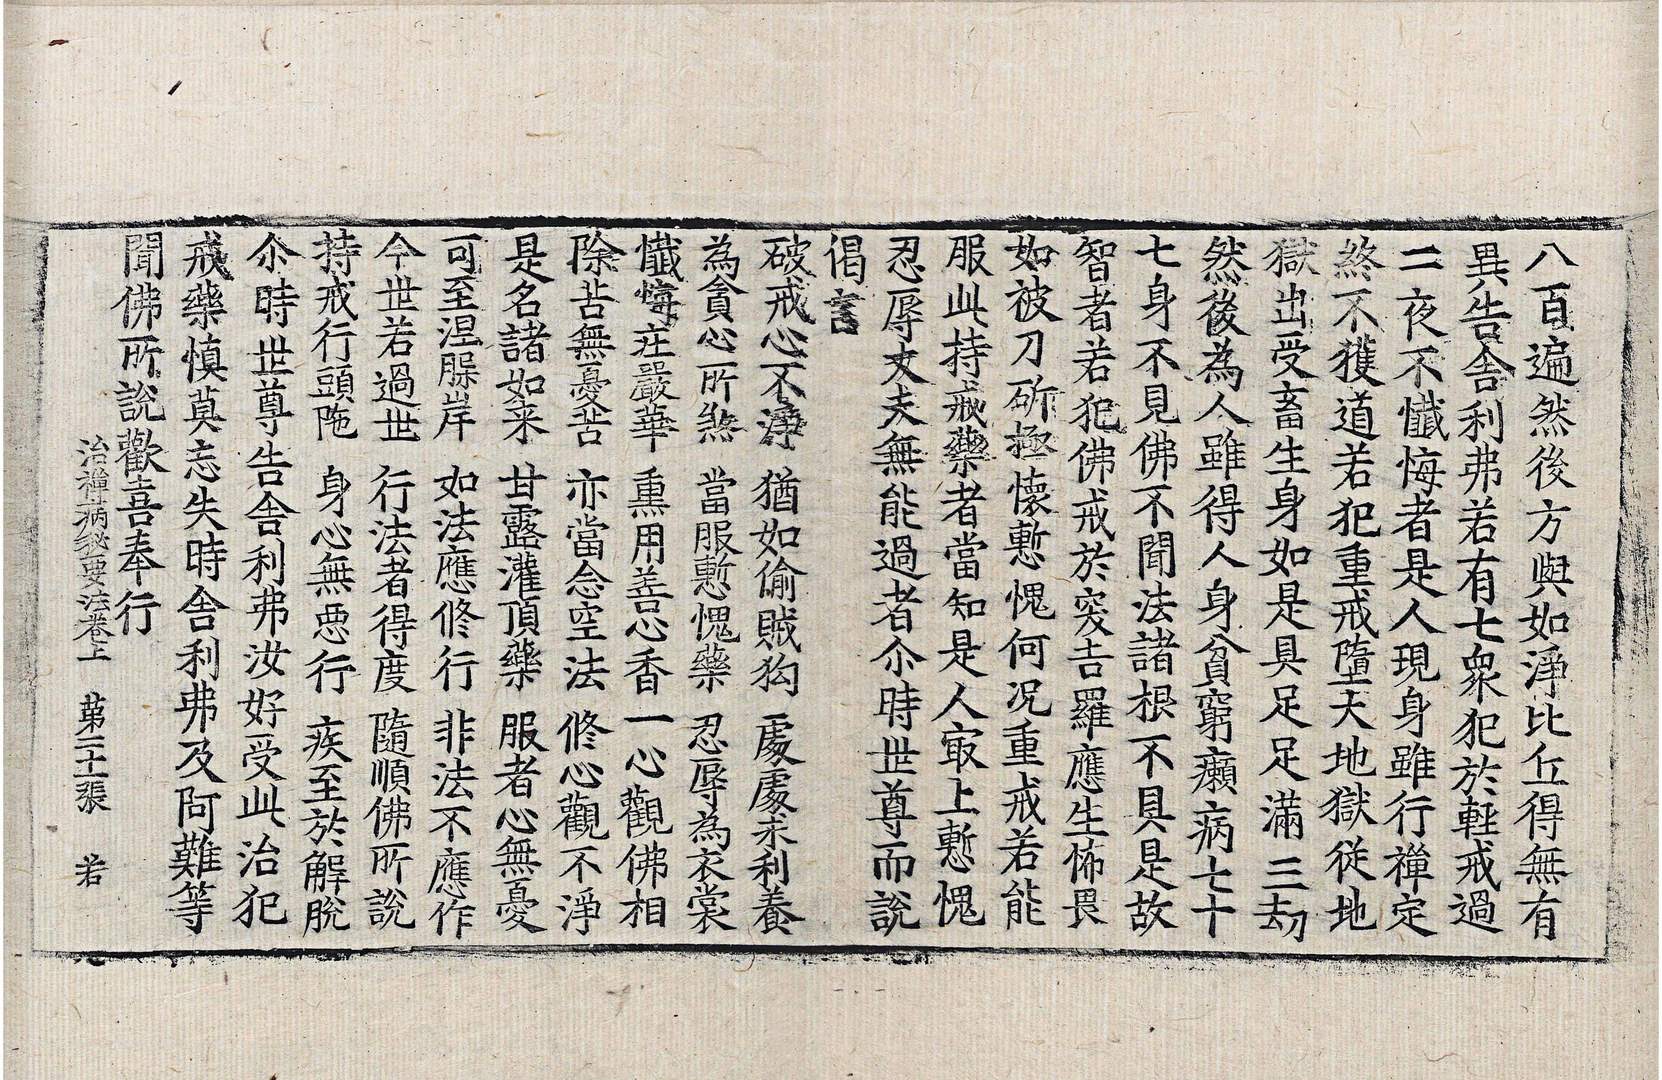 八百遍然後方與如淨比丘得無有
異告舍利弗若有七衆犯於輕戒過
二夜不懺悔者是人現身雖行禪定
終不獲道若犯重戒墮大地獄從地
獄出受畜生身如是具足足滿三劫
然後為人雖得人身貧窮癩病七十
七身不見佛不聞法諸根不具是故
智者若犯佛戒於突吉羅應生怖畏
如被刀斫極懷慙愧何況重戒若能
服此持戒藥者當知是人冣上慙愧
忍辱丈夫無能過者尒時世尊而說
偈言
破戒心不淨　猶如偷賊狗　處處求利養
為貪心所煞　當服慙愧藥　忍辱為衣裳
懺悔莊嚴華　熏用善心香　一心觀佛相
除苦無憂苦　亦當念空法　修心觀不淨
是名諸如来　甘露灌頂藥　服者心無憂
可至涅槃岸　如法應修行　非法不應作
今世若過世　行法者得度　隨順佛所說
持戒行頭陁　身心無惡行　疾至於解脫
尒時世尊告舍利弗汝好受此治犯
戒藥慎莫忘失時舍利弗及阿難等
聞佛所說歡喜奉行
治禪病祕要法卷上　苐二十張　若